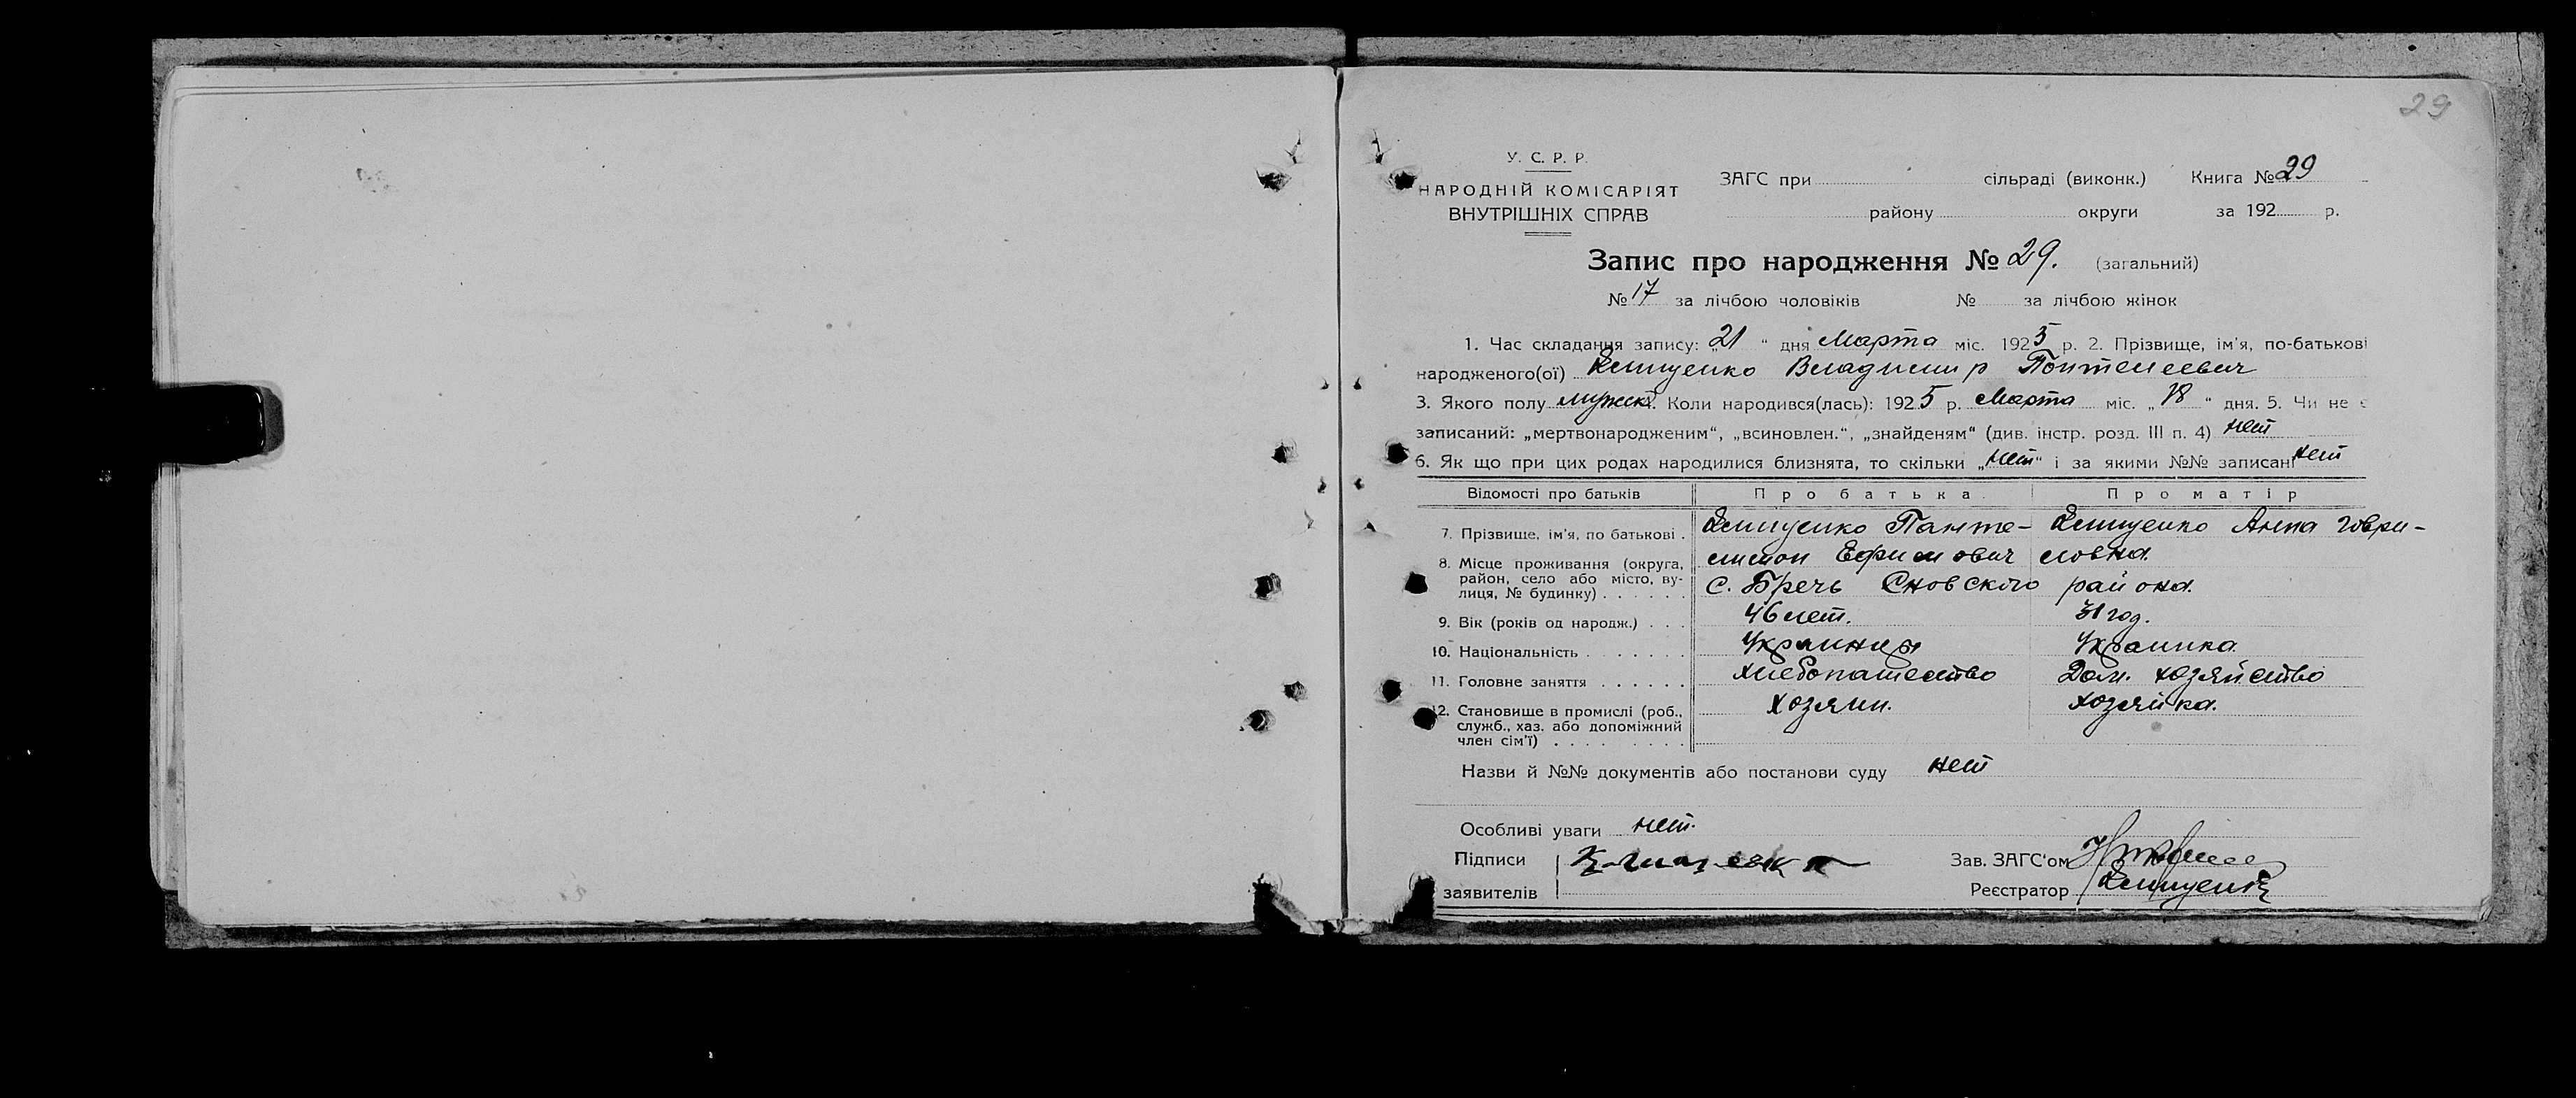 29
У. С. Р. Р.
НАРОДНІЙ КОМІСАРІЯТ
ВНУТРІШНІХ СПРАВ
ЗАГС при сільраді (виконк.) Книга № 29
району округи за 192 р.
Запис про народження № 29. (загальний)
№ 17 за лічбою чоловіків № за лічбою жінок
1. Час складання запису: „21“ дня Марта міс. 1925 р. 2. Прізвище, ім'я, по-батькові
народженого(ої) Клищенко Владимир Пантелеевич
3. Якого полу мужск. Коли народився(лась): 1925 р. Марта міс. „18“ дня. 5. Чи не є
записаний: „мертвонародженим“, „всиновлен.“, „знайденям“ (див. інстр. розд. III п. 4) нет
6. Як що при цих родах народилися близнята, то скільки „нет“ і за якими №№ записані нет
Відомості про батьків Про батька Про матір
7. Прізвище, ім'я, по батькові . Клищенко Панте- Клищенко Анна Гаври-
лимон Ефимович ловна.
8. Місце проживання (округа,
район, село або місто, ву-
лиця, № будинку) . . . . . . с. Бречь Сновского района.
9. Вік (років од народж.) . . . 46 лет. 31 год.
10. Національність . . . . . . . Украинец Украинка
11. Головне заняття . . . . . . Хлебопашество Дом. хозяйство
12. Становище в промислі (роб.,
служб., хаз. або допоміжний
член сім'ї) . . . . . . . . Хозяин. хозяйка.
Назви й №№ документів або постанови суду нет
Особливі уваги нет.
Підписи Клищенко Зав. ЗАГС'ом
заявителів Реєстратор Клищенко